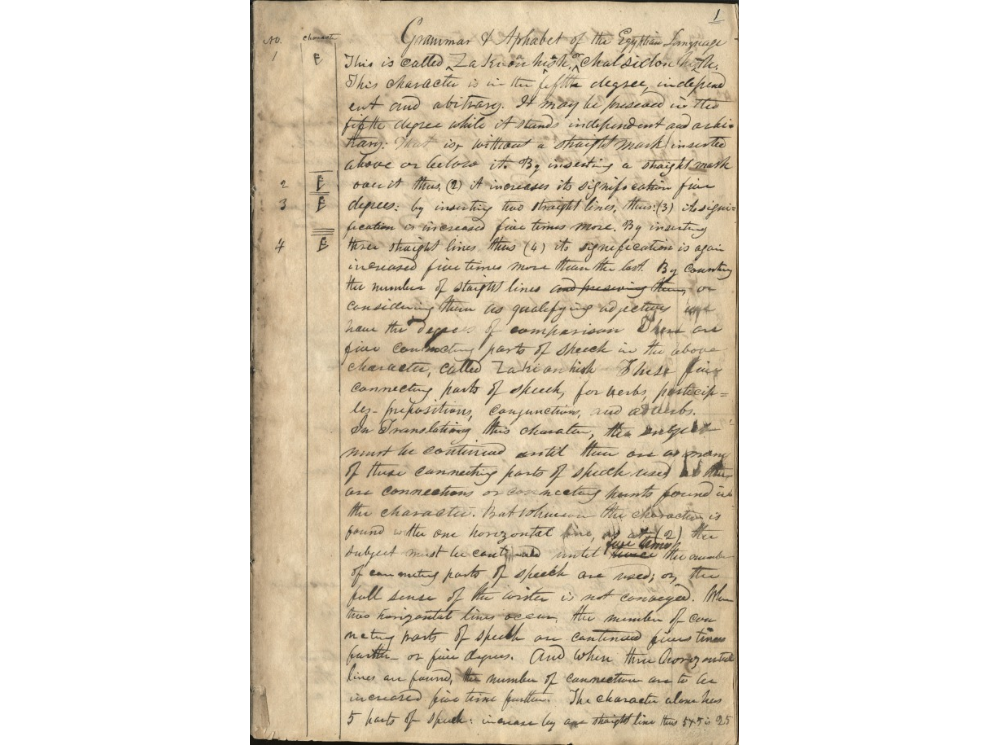 1
No. character Grammar & Aphabet of the Egyptian Language
1 This is called Za Ki on hish, or Chalsidon hish.
This character is in the fifth degree, independ
ent and abitrary. It may be preseved in the
fifth degree while it stands independent and arbi
trary: That is, without a straight mark inserted
above or below it. By inserting a straight mark
2 over it thus, (2) it increases its signification five
3 degrees: by inserting two straight lines, thus: (3) its signi
fication is increased five times more. By inserting
4 three straight lines thus (4) its signification is again
increased five times more than the last. By counting
the number of straight lines and preserving them, or
considering them as qualifying adjectives we
have the degrees of comparison There are
five connecting parts of speech in the above
character, called Za ki on hish These five
connecting parts of speech, for verbs, particip=
les— prepositions, conjunctions, and adverbs.
In Translating this character, this subject
must be continued until there are as many
of these connecting parts of speech used as there
are connections or connecting points found in
the character. But whenever the character is
found with one horizontal line, as at (2) the
subject must be continued until five times twice the number
of connecting parts of speech are used; or, the
full sense of the writer is not conveyed. When
two horizontal lines occur, the number of con
necting parts of speech are continued five times
further— or five degrees. And when three horizontal
lines are found, the number of connections are to be
increased five times further. The character alone has
5 parts of speech: increase by one straight line thus 5x5 is 25